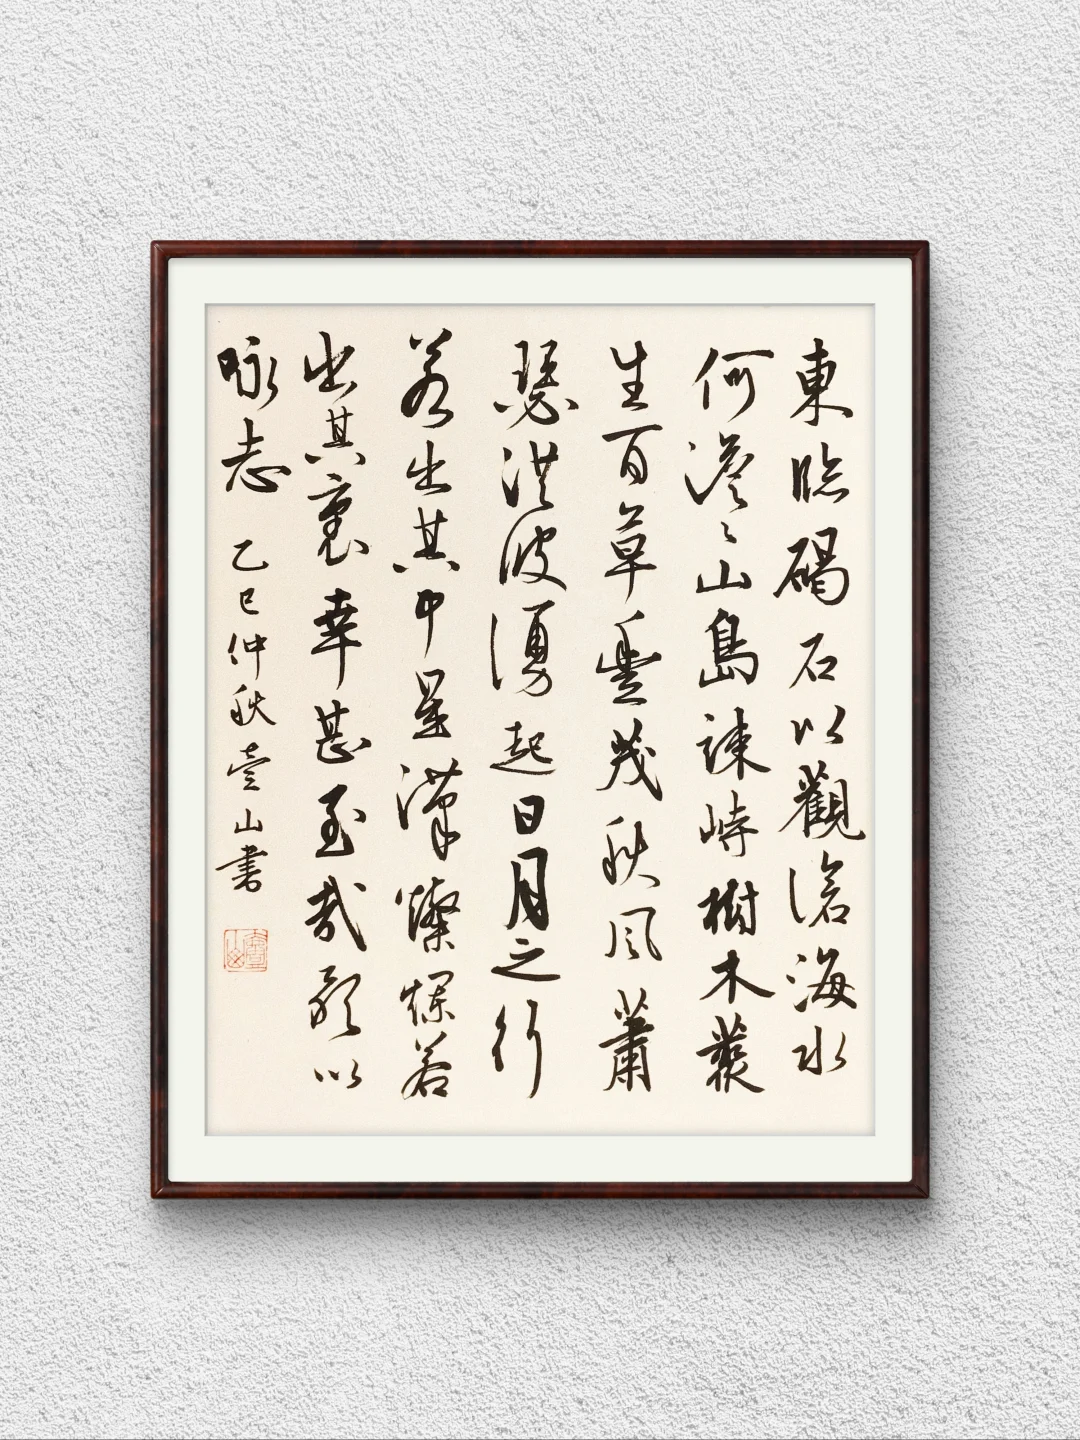 東臨碣石以觀滄海水
何澹〻山島竦峙樹木叢
生百草豐茂秋風蕭
瑟洪波湧起日月之行
若出其中星漢燦爛若
出其裏幸甚至哉歌以
咏志 乙巳仲秋壹山書